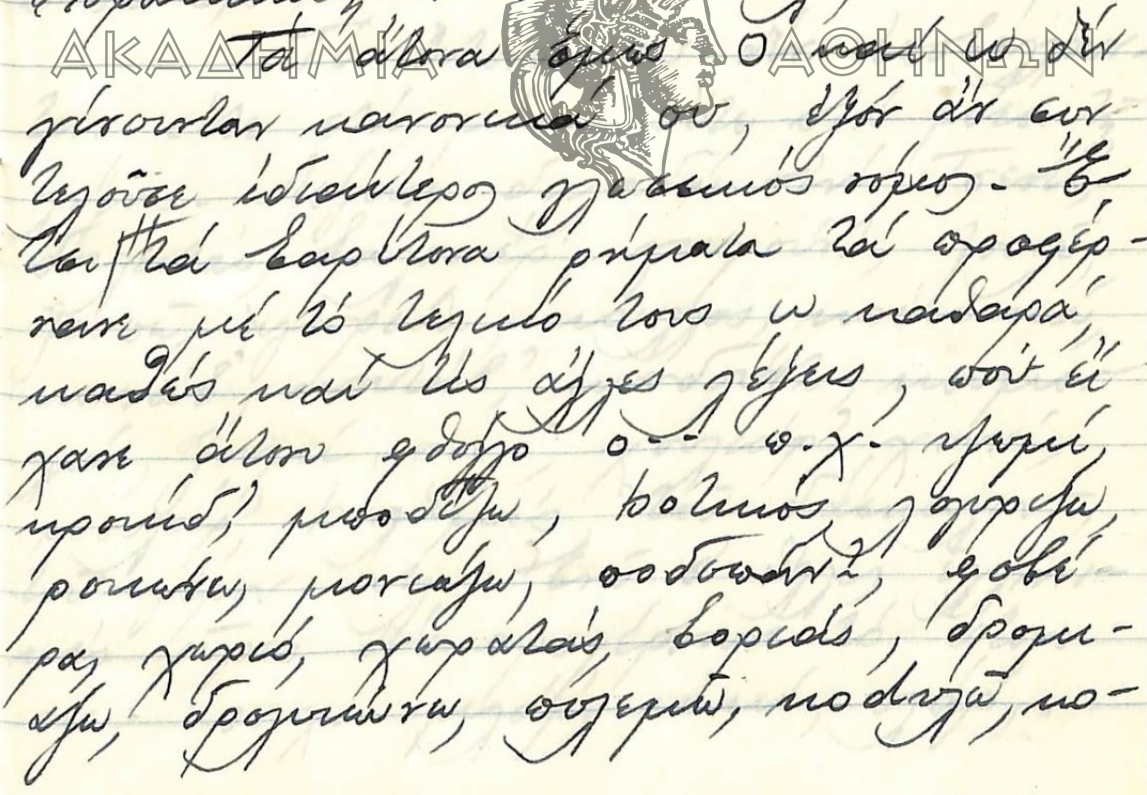 ΑΚΑΔΗΜΙΑ ΑΘΗΝΩΝ
Τά ἄτονα ὅμως ο καί ω δέν
γίνουνταν κανονικά ου, ἐξόν ἄν συν-
τελοῦσε ἰδιαίτερος γλωσσικός νόμος. - Ἔ
τσι τά βαρύτονα ρήματα τά προφέρ-
νανε μέ τό τελικό τους ω καθαρά,
καθώς καί τίς ἄλλες λέξεις, πού εἴ
χανε ἄτονο φθόγγο ο-- π.χ. ψωμί,
κροκίδ', μποδίζω, ποτικός, λογυρίζω,
ροκώνω, μονιάζω, ποδοπάν', φοβέ
ρα, χωριό, χωρατάς, βοριάς, δρομι-
άζω, δρομκώνω, πολεμῶ, κοdυλῶ, κο-